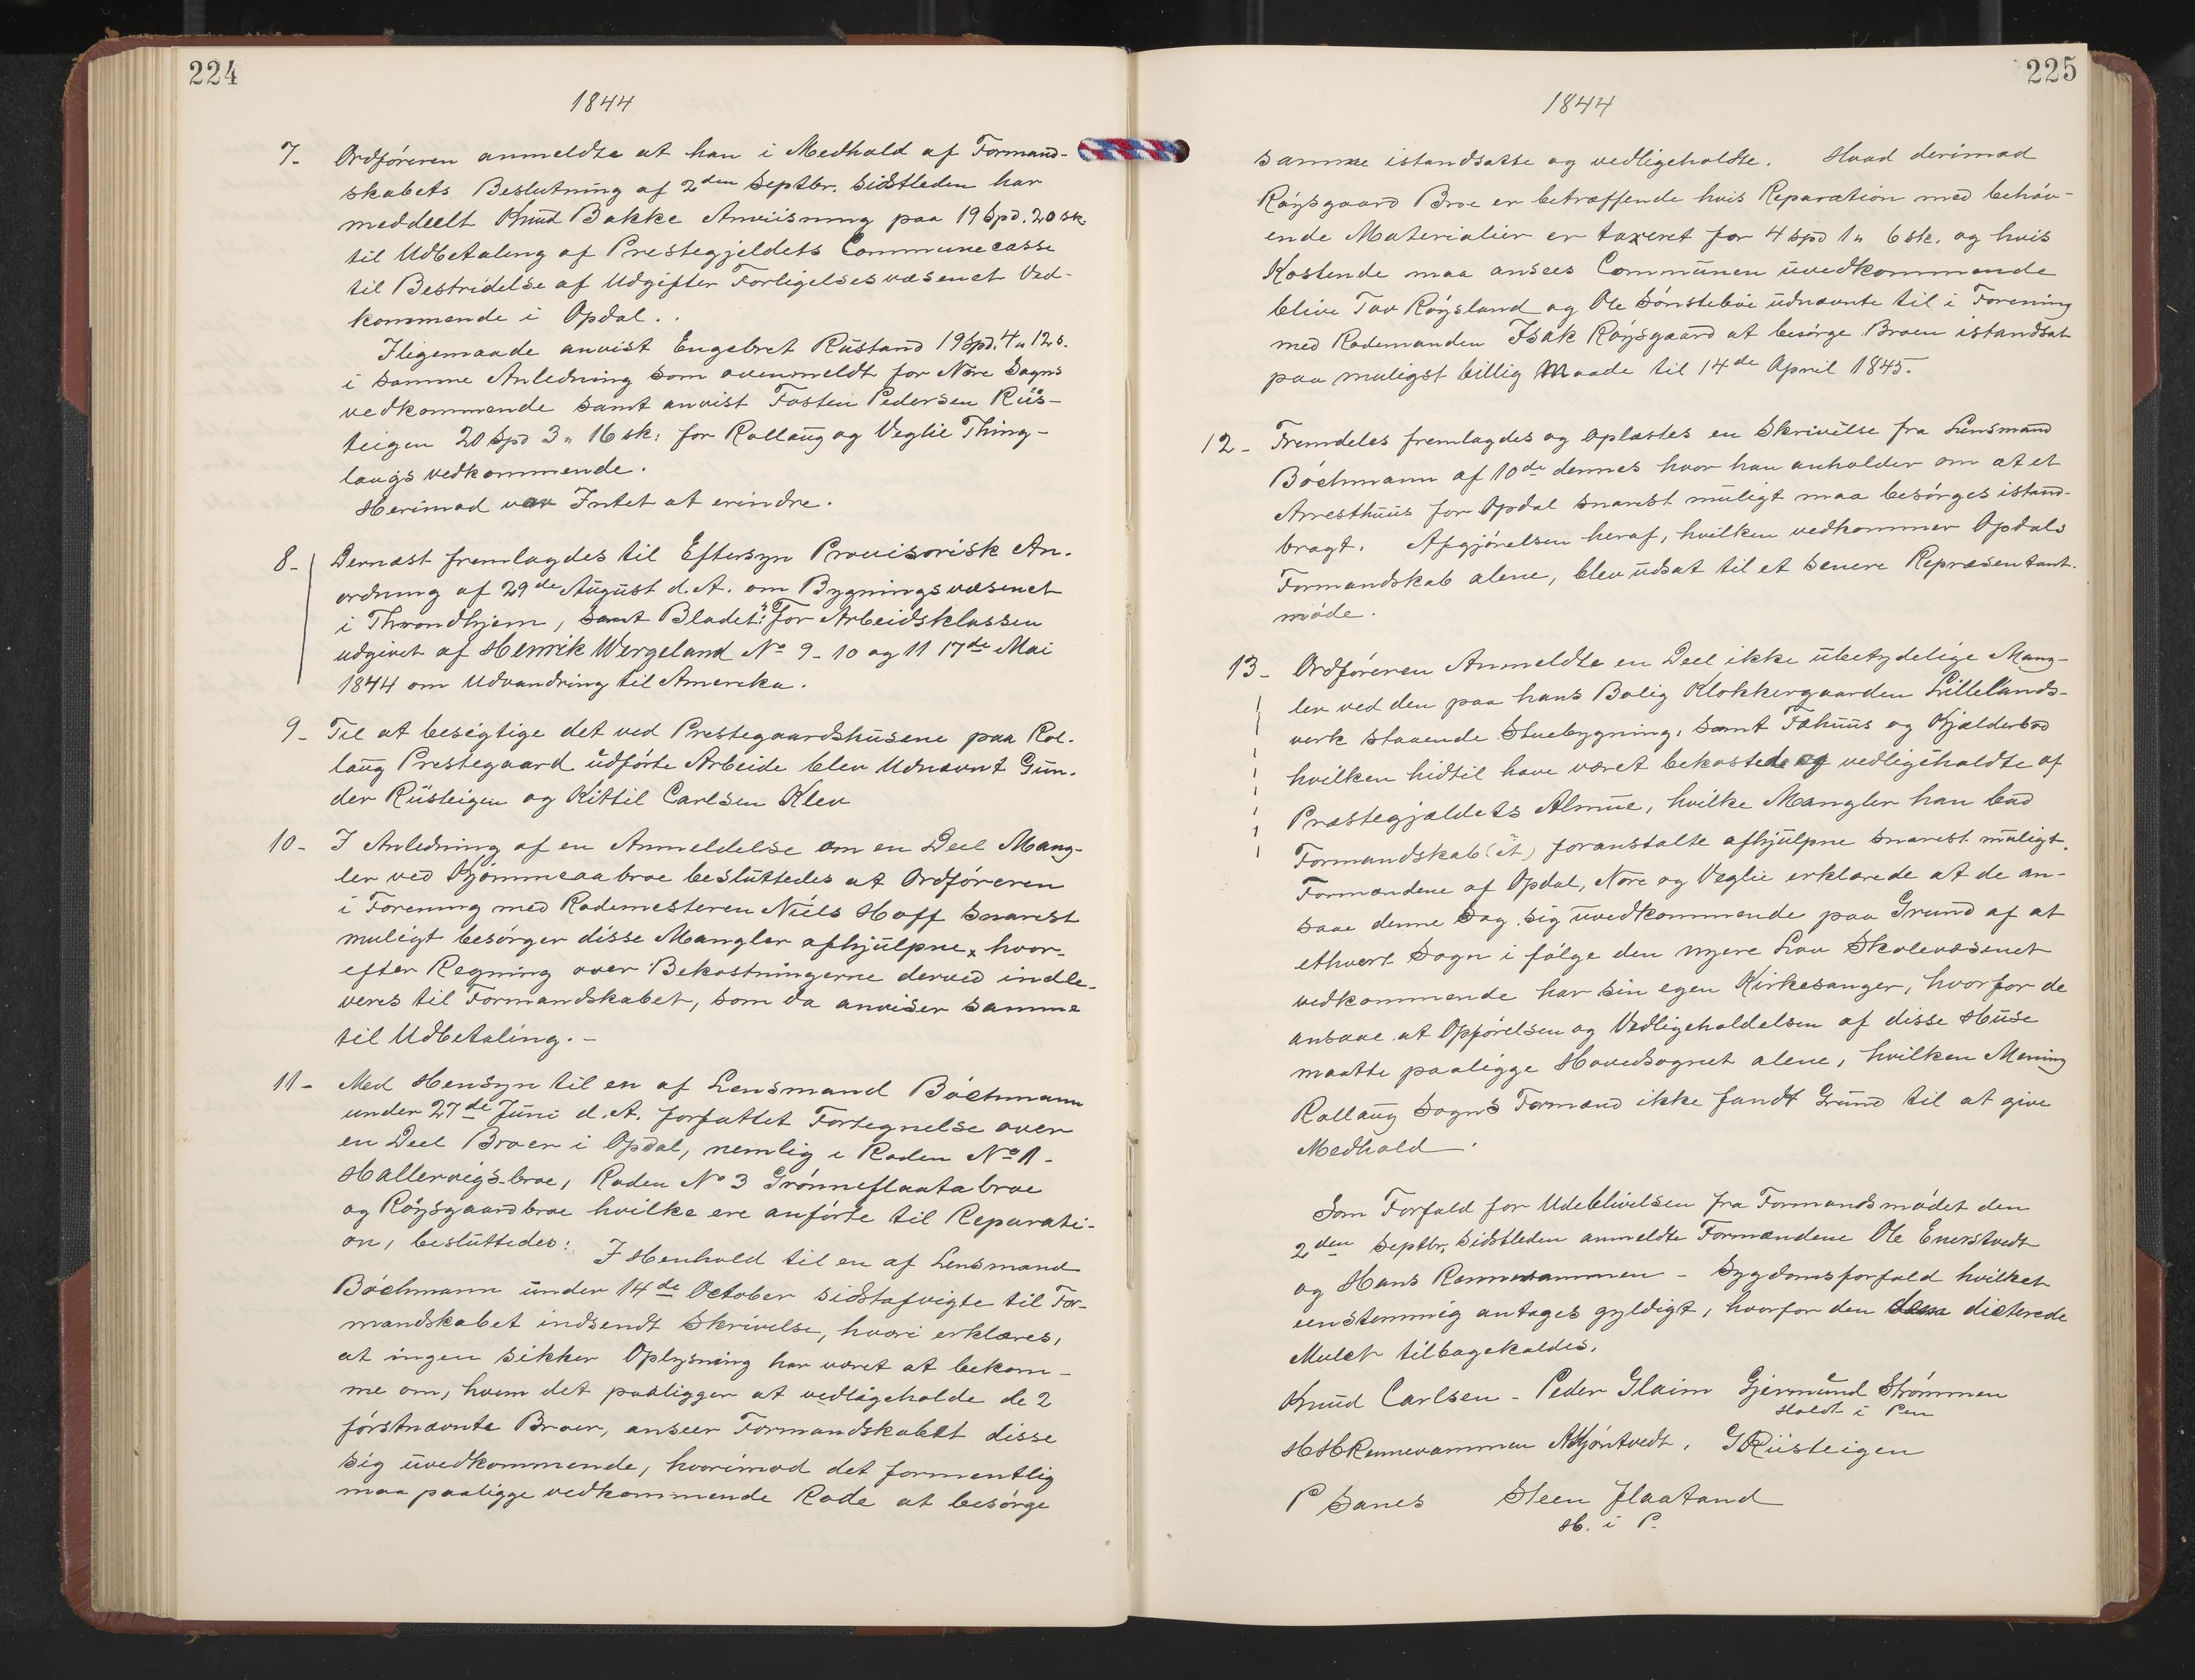 224
1844
7- Ordføreren anmeldte at han i Medhold af Formand-
skabets Beslutning af 2den Septbr. sidstleden har
meddeelt Knud Bakke Anviisning paa 19 Spd. 20 sk.
til Udbetaling af Prestegjeldets Communecasse
til Bestridelse af Udgifter Forligelsesvæsenet Ved-
kommende i Opdal..
Iligemaade anvist Engebret Rustand 19 Spd. 4 " 12 s.
i samme Anledning som ovenmeldt for Nore Sogns
vedkommende samt anvist Tosten Pedersen Rus-
teigen 20 Spd 3 " 16 sk: for Rollaug og Veglie Thing-
laugs vedkommende.
Herimod var Intet at erindre.
8- Dernæst fremlagdes til Eftersyn Provisorisk An-
ordning af 29de August d. A. om Bygningsvæsenet
i Throndhjem, samt Bladet: "For Arbeidsklassen
udgivet af Henrik Wergeland No 9-10 og 11 17de Mai
1844 om Udvandring til Amerika.
9- Til at besigtige det ved Prestegaardshusene paa Rol-
laug Prestegaard udførte Arbeide blev Udnævnt Gun-
der Rusteigen og Kittil Carlsen Klev
10- I Anledning af en Anmeldelse om en Deel Mang-
ler ved Kjømmeaabroe besluttedes at Ordføreren
i Forening med Rodemesteren Niels Hoff snarest
muligt besørger disse Mangler afhjulpne, hvor-
efter Regning over Bekostningerne derved indle-
veres til Formandskabet, som da anviser samme
til Udbetaling. -
11- Med Hensyn til en af Lensmand Bøchmann
under 27de Juni d. A. forfattet Fortegnelse over
en Deel Broer i Opdal, nemlig i Roden No 1-
Hallervigsbroe, Roden No 3 Grønneflaatabroe
og Røysgaardbroe hvilke ere anførte til Reparati-
on, besluttedes: I Henhold til en af Lensmand
Bøchmann under 14de October sidstafvigte til For-
mandskabet indsendt Skrivelse, hvori erklæres,
at ingen sikker Oplysning har været at bekom-
me om, hvem det paaligger at vedligeholde de 2
førstnævnte Broer, anseer Formandskabet disse
sig uvedkommende, hvorimod det formentlig
maa paaligge vedkommende Rode at besørge
225
1844
samme istandsatte og vedligeholdte. Hvad derimod
Røysgaard Broe er betræffende hvis Reparation med behøv-
ende Materialier er taxeret for 4 spd 1 " 6 sk. og hvis
Kostende maa ansees Communen uvedkommende
blive Tov Røysland og Ole Sønstebøe udnævnte til i Forening
med Rodemanden Isak Røysgaard at besørge Broen istandsat
paa muligst billig Maade til 14de April 1845.
12- Fremdeles fremlagdes og oplæstes en Skrivelse fra Lensmand
Bøchmann af 10de dennes hvor han anholder om at et
Arresthuus for Opdal snarest muligt maa besørges istand-
bragt. Afgjørelsen heraf, hvilken vedkommer Opdals
Formandskab alene, blev udsat til et senere Repræsentant-
møde.
13- Ordføreren Anmeldte en Deel ikke ubetydelige Mang-
ler ved den paa hans Bolig Klokkergaarden Lillelands-
verk staaende Stuebygning, samt Fæhuus og Kjælderbod
hvilken hidtil have været bekostede og vedligeholdte af
Præstegjældets Almue, hvilke Mangler han bad
Formandskab(et) foranstalte afhjulpne snarest muligt.
Formændene af Opdal, Nore og Veglie erklærede at de an-
saae denne Sag sig uvedkommende paa Grund af at
ethvert Sogn i følge den nyere Lov Skolevæsenet
vedkommende har sin egen Kirkesanger, hvorfor de
ansaae at Opførelsen og Vedligeholdelsen af disse Huse
maatte paaligge Hovedsognet alene, hvilken Mening
Rollaug Sogns Formænd ikke fandt Grund til at give
Medhold.
Som Forfald for Udeblivelsen fra Formandsmødet den
2den Septbr. sidstleden anmeldte Formændene Ole Enerstvedt
og Hans Rennevammen - Sygdomsforfald hvilket
eenstemmig antages gyldigt, hvorfor den dicterede
Mulct tilbagekaldes.
Knud Carlsen - Peder Glaim Gjermund Strømmen
Holdt i Pen
H H Rennevammen Kjøntvedt. G Rusteigen
P Sanes Steen Flaatand
H. i P.